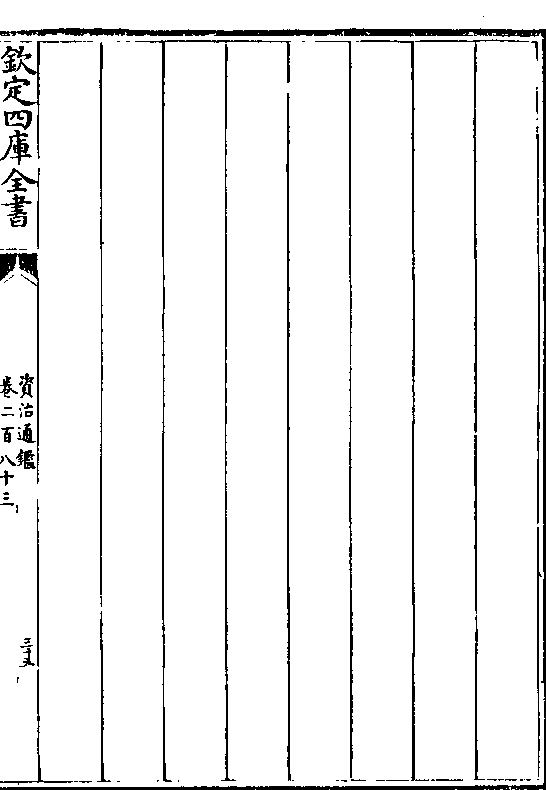 欽定四庫全書
資治通鑑
卷二百八十三
三十五